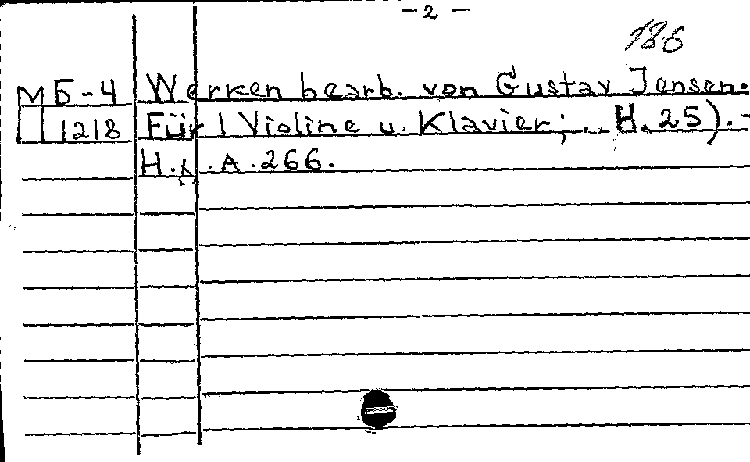 - 2 -
186
МБ-4 Werken bearb. von Gustav Jensen.
1218 Für 1 Violine u. Klavier; .. H. 25). -
H. . A. 266.